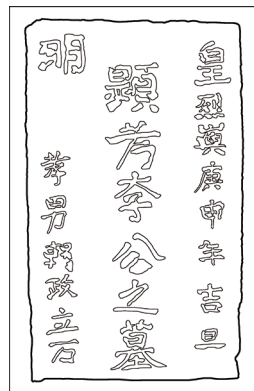 皇烈嶼庚申年吉旦
顯芳李公之墓
明
孝男政立石